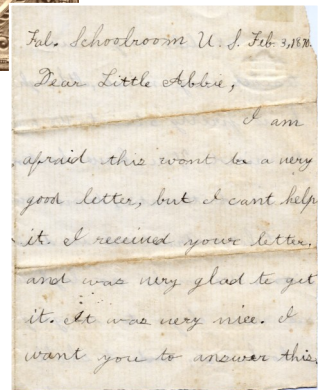 Fal. Schoolroom U. S. Feb 3, 1870.
Dear Little Abbie,
I am
afraid this wont be a very
good letter, but I cant help
it. I received your letter,
and was very glad to get
it. It was very nice. I
want you to answer this,